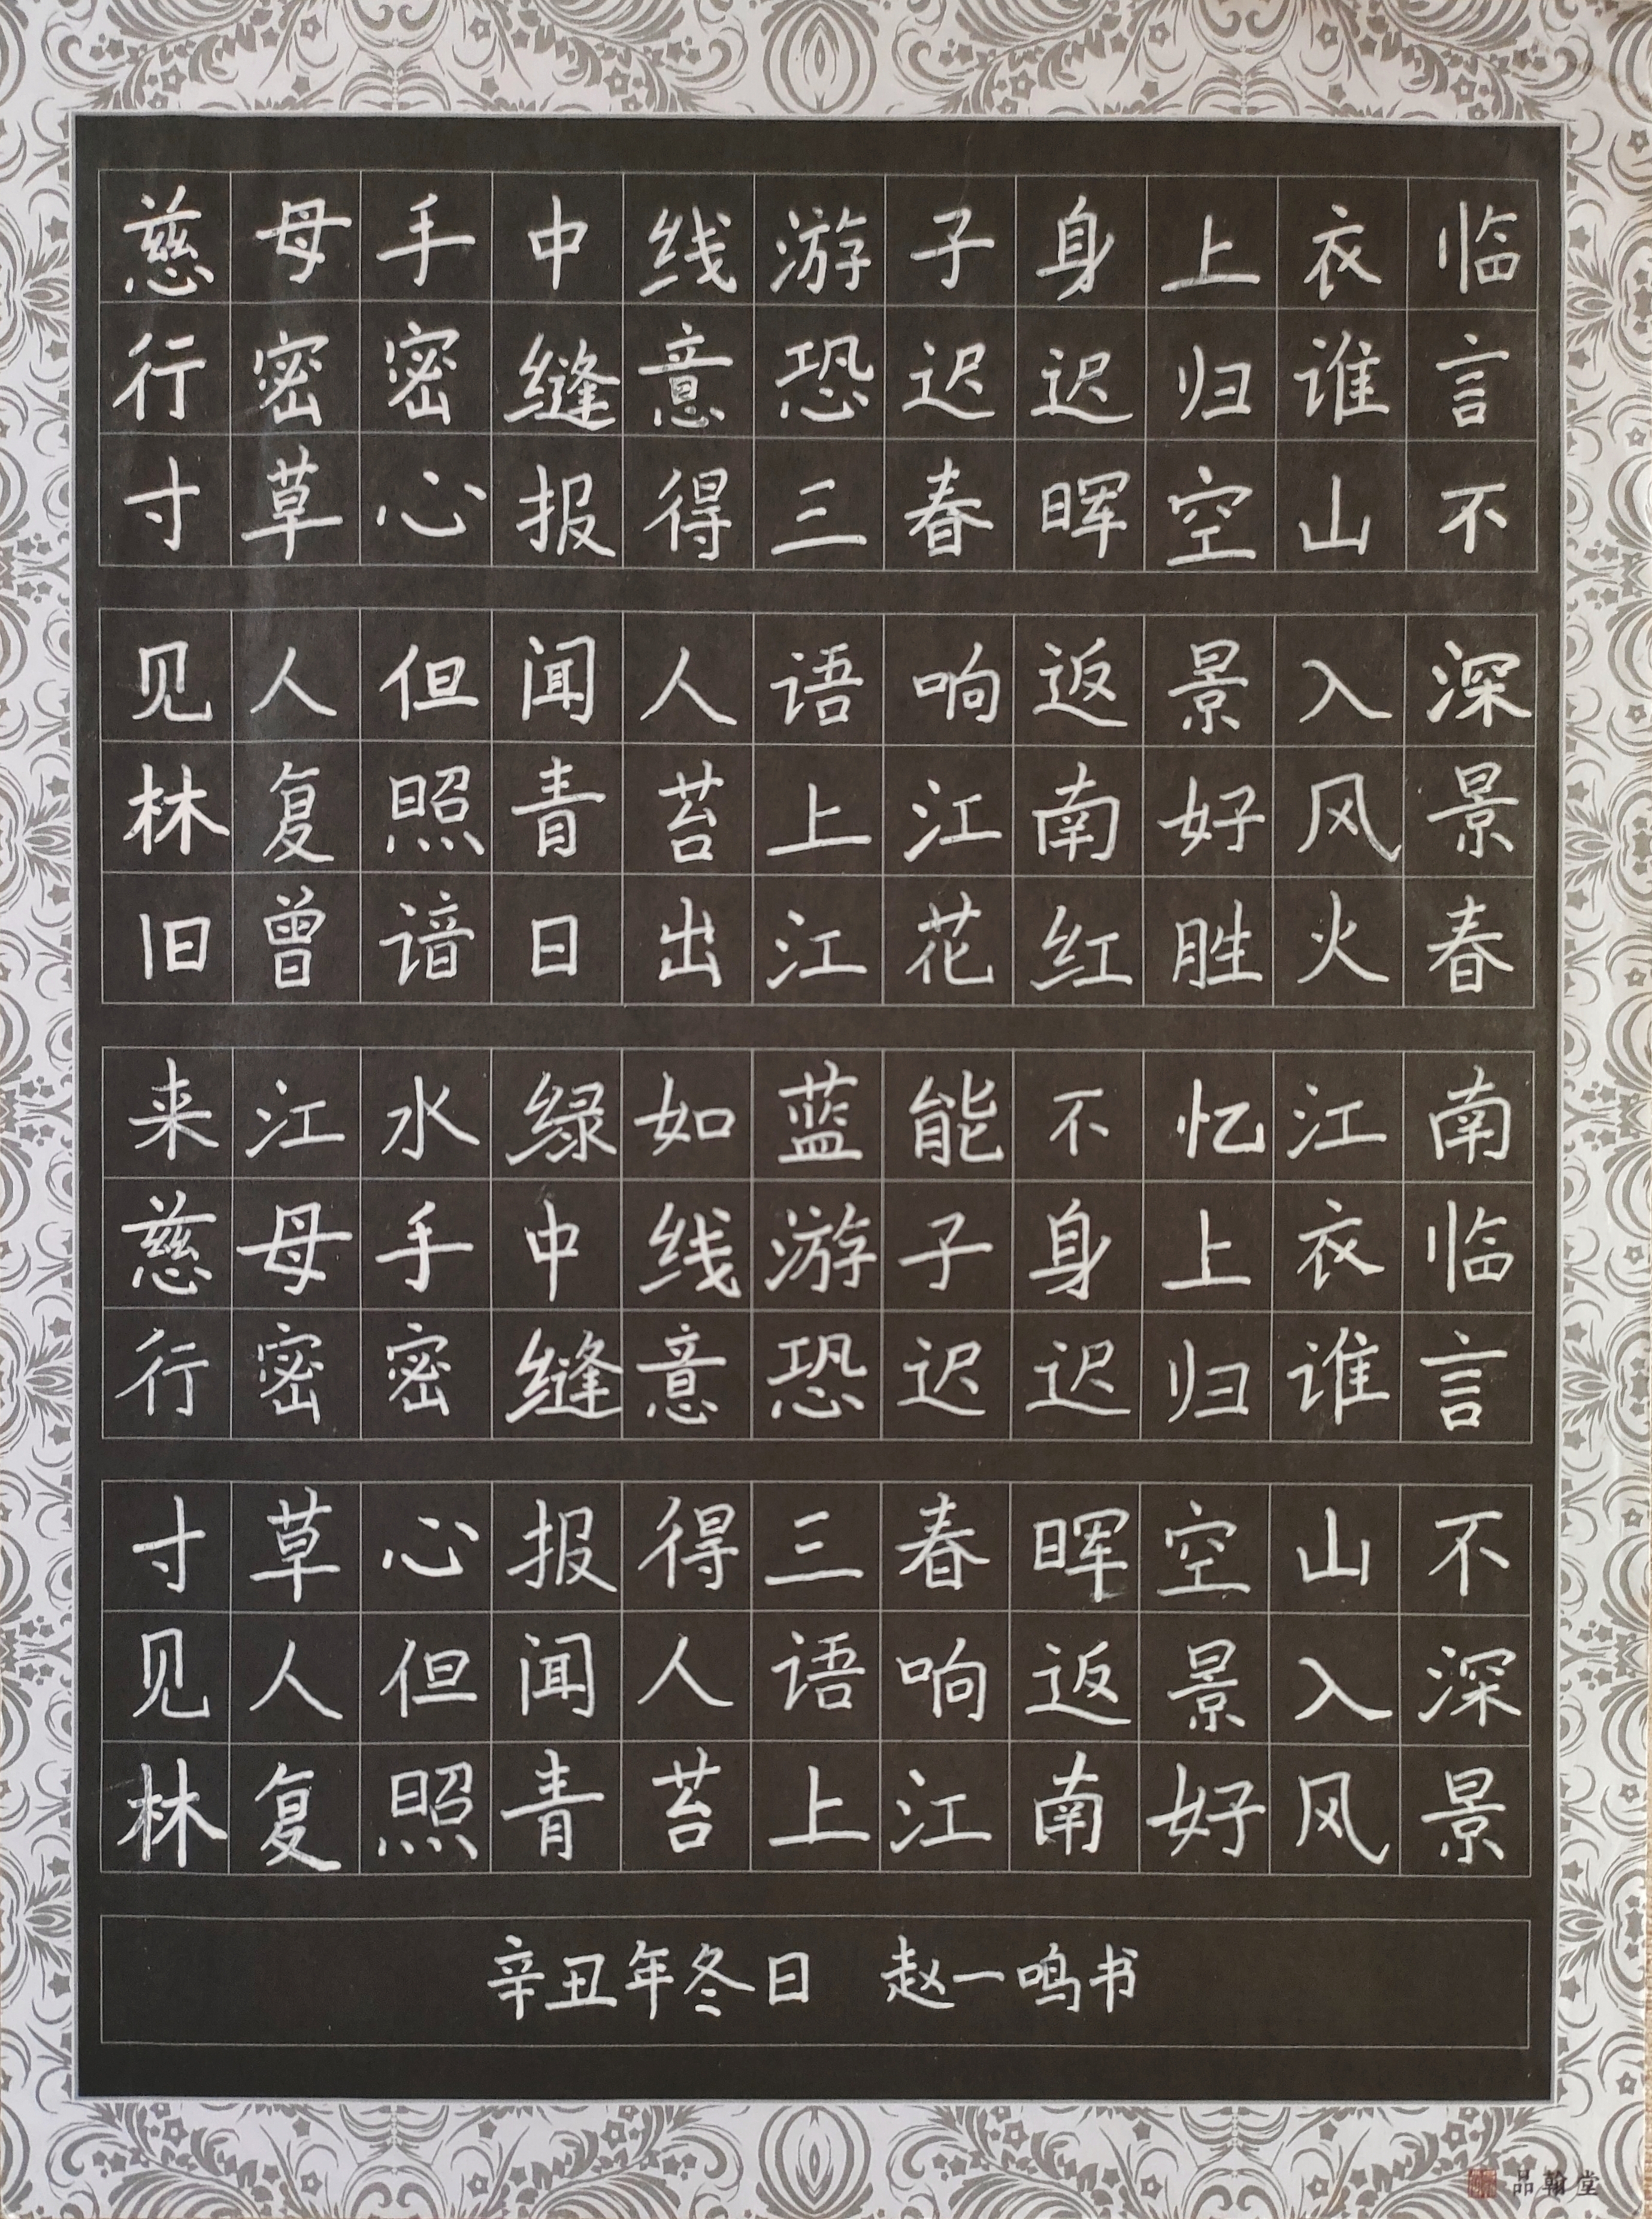 慈母手中线游子身上衣临
行密密缝意恐迟迟归谁言
寸草心报得三春晖空山不
见人但闻人语响返景入深
林复照青苔上江南好风景
旧曾谙日出江花红胜火春
来江水绿如蓝能不忆江南
慈母手中线游子身上衣临
行密密缝意恐迟迟归谁言
寸草心报得三春晖空山不
见人但闻人语响返景入深
林复照青苔上江南好风景
辛丑年冬日 赵一鸣书
品翰堂